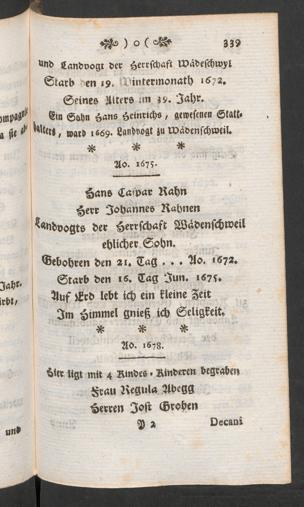 ) o (
339
und Landvogt der Herrschaft Wädeschwyl
Starb den 19. Wintermonath 1672.
Seines Alters im 39. Jahr.
Ein Sohn Hans Heinrichs, gewesenen Statt-
halters, ward 1669. Landvogt zu Wädenschweil.
* * *
Ao. 1675.
Hans Caspar Rahn
Herr Johannes Rahnen
Landvogts der Herrschaft Wädenschweil
ehlicher Sohn.
Gebohren den 21. Tag . . . Ao. 1672.
Starb den 16. Tag Jun. 1675.
Auf Erd lebt ich ein kleine Zeit
Im Himmel gnieß ich Seligkeit.
* * *
Ao. 1678.
Hier ligt mit 4 Kindes-Kinderen begraben
Frau Regula Abegg
Herren Jost Groben
Y 2
Decani
Jahr.
und